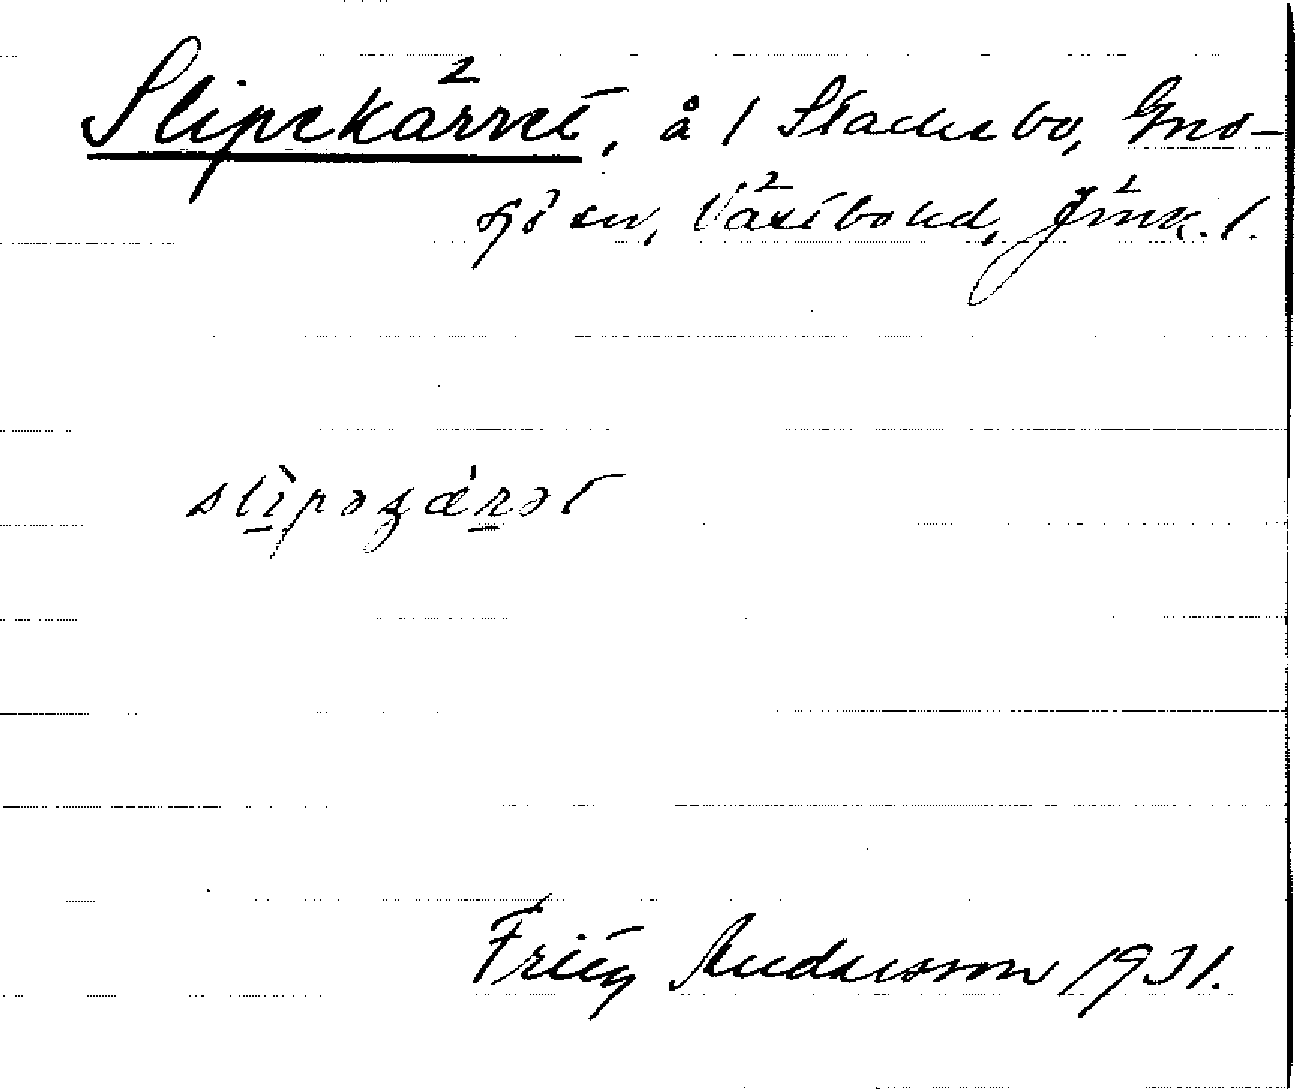 Slipekärret, å 1 Stackebo, Gno-
sjö sn, Västbo hd, Jönk. l.
slìpəgárət
Fritz Andersson 1931.